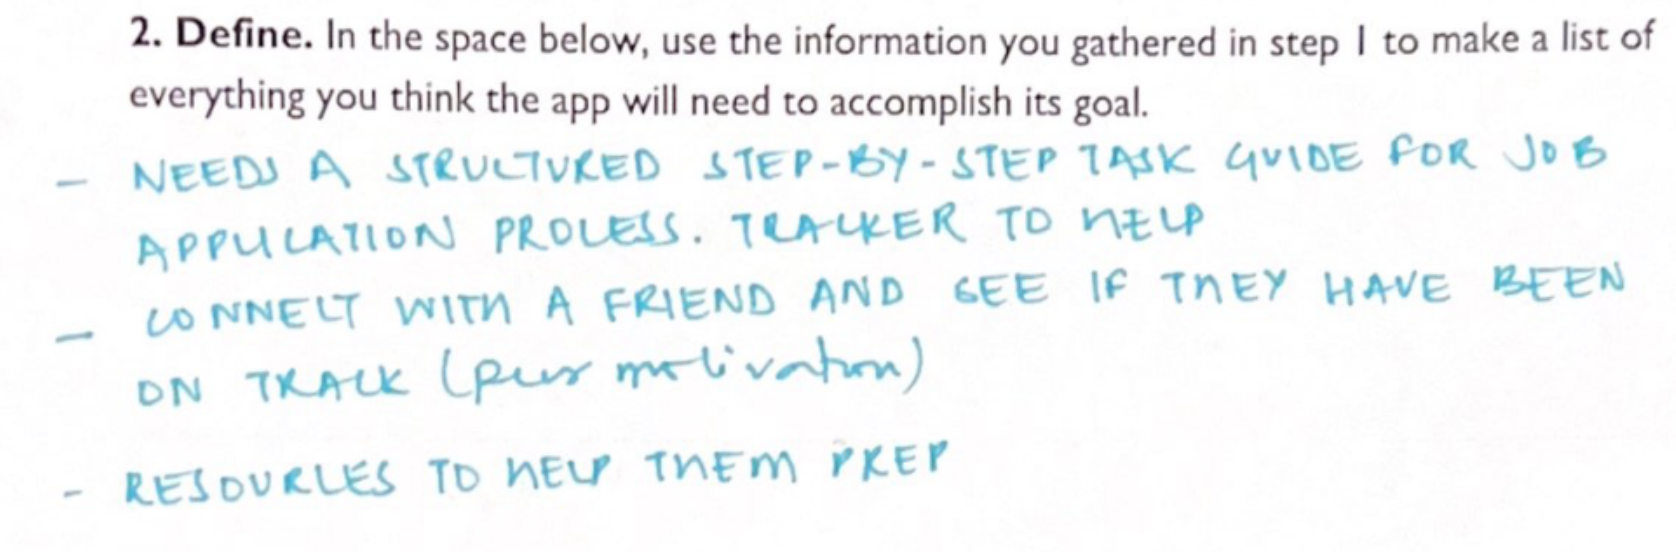 2. Define. In the space below, use the information you gathered in step 1 to make a list of
everything you think the app will need to accomplish its goal.
- NEEDS A STRUCTURED STEP-BY-STEP TASK GUIDE FOR JOB
APPLICATION PROCESS. TRACKER TO HELP
- CONNECT WITH A FRIEND AND SEE IF THEY HAVE BEEN
ON TRACK (peer motivation)
- RESOURCES TO HELP THEM PREP